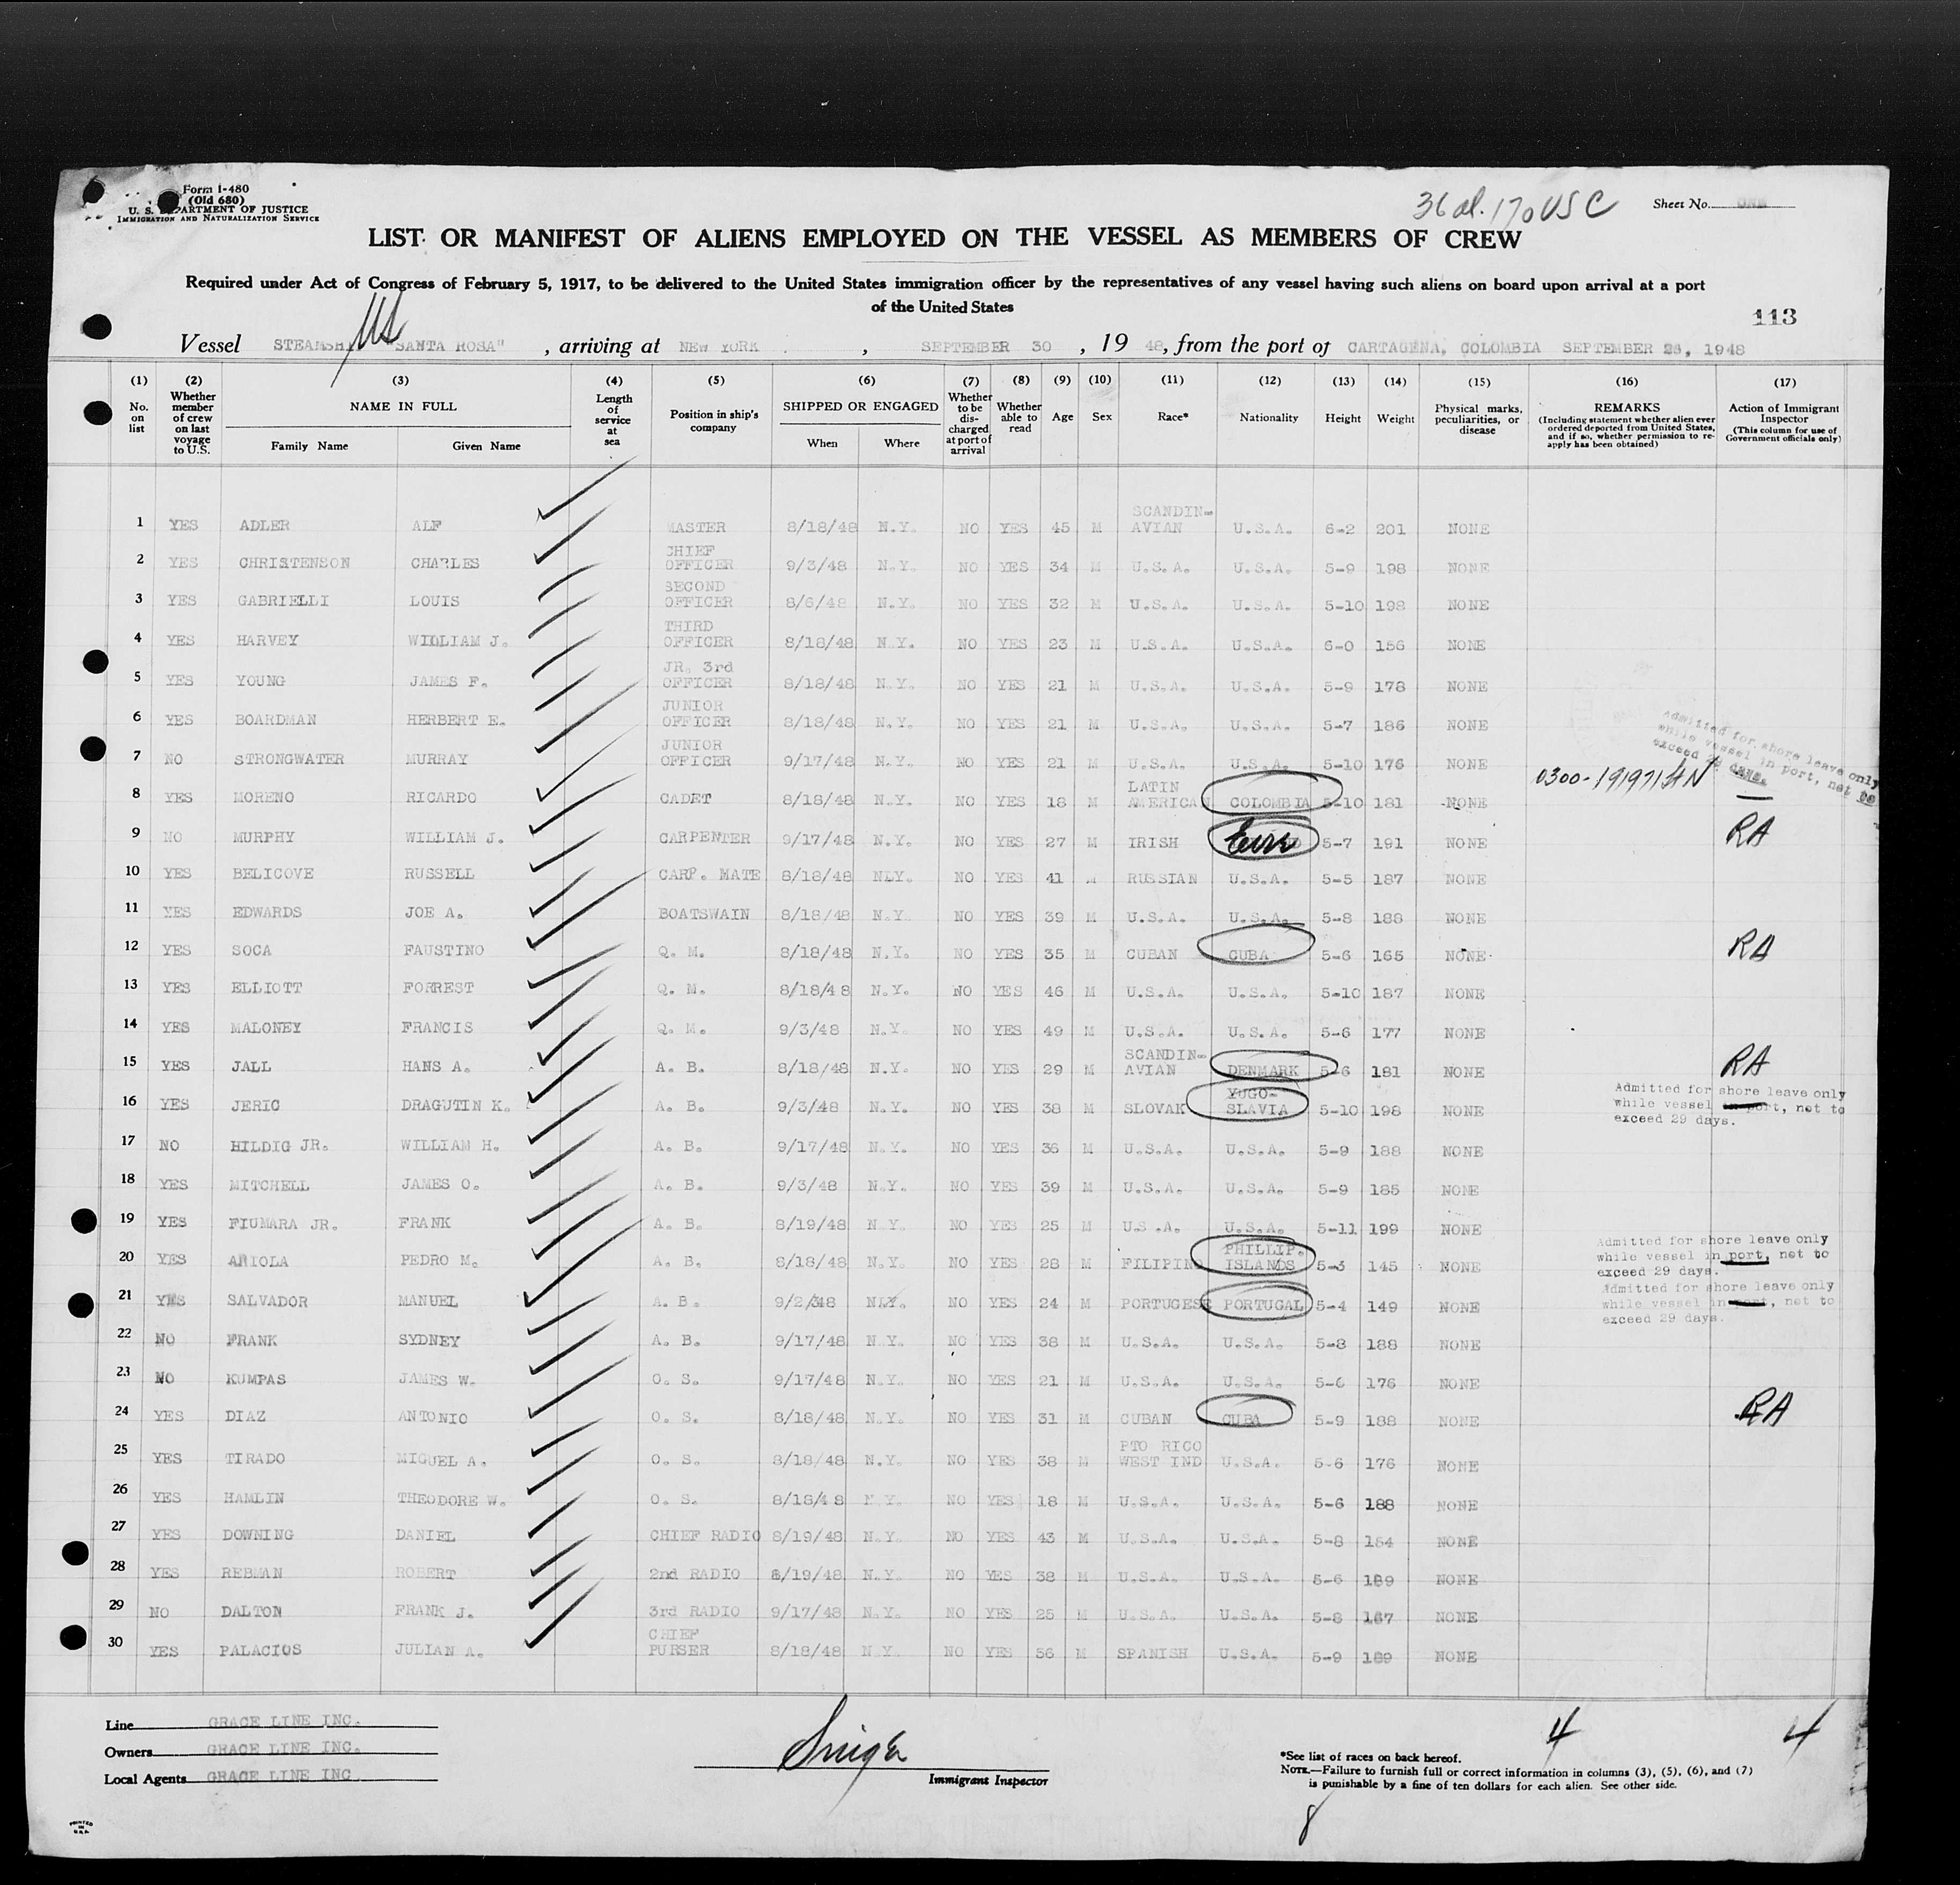 Form I-480
(Old 680)
U. S. DEPARTMENT OF JUSTICE
IMMIGRATION AND NATURALIZATION SERVICE
36 al. 170 USC
Sheet No. ONE
LIST OR MANIFEST OF ALIENS EMPLOYED ON THE VESSEL AS MEMBERS OF CREW
Required under Act of Congress of February 5, 1917, to be delivered to the United States immigration officer by the representatives of any vessel having such aliens on board upon arrival at a port
of the United States
113
Vessel STEAMSHIP "SANTA ROSA" , arriving at NEW YORK , SEPTEMBER 30 , 19 48, from the port of CARTAGENA, COLOMBIA SEPTEMBER 26, 1948
(1) (2) (3) (4) (5) (6) (7) (8) (9) (10) (11) (12) (13) (14) (15) (16) (17)
No. on list
Whether member of crew on last voyage to U.S.
NAME IN FULL
Family Name Given Name
Length of service at sea
Position in ship's company
SHIPPED OR ENGAGED
When Where
Whether to be discharged at port of arrival
Whether able to read
Age
Sex
Race*
Nationality
Height
Weight
Physical marks, peculiarities, or disease
REMARKS
(Including statement whether alien ever ordered deported from United States, and if so, whether permission to reapply has been obtained)
Action of Immigrant Inspector
(This column for use of Government officials only)
1 YES ADLER ALF MASTER 8/18/48 N.Y. NO YES 45 M SCANDIN-AVIAN U.S.A. 6-2 201 NONE
2 YES CHRISTENSON CHARLES CHIEF OFFICER 9/3/48 N.Y. NO YES 34 M U.S.A. U.S.A. 5-9 198 NONE
3 YES GABRIELLI LOUIS SECOND OFFICER 8/6/48 N.Y. NO YES 32 M U.S.A. U.S.A. 5-10 198 NONE
4 YES HARVEY WILLIAM J. THIRD OFFICER 8/18/48 N.Y. NO YES 23 M U.S.A. U.S.A. 6-0 156 NONE
5 YES YOUNG JAMES F. JR. 3rd OFFICER 8/18/48 N.Y. NO YES 21 M U.S.A. U.S.A. 5-9 178 NONE
6 YES BOARDMAN HERBERT E. JUNIOR OFFICER 8/18/48 N.Y. NO YES 21 M U.S.A. U.S.A. 5-7 186 NONE
7 NO STRONGWATER MURRAY JUNIOR OFFICER 9/17/48 N.Y. NO YES 21 M U.S.A. U.S.A. 5-10 176 NONE
Admitted for shore leave only
while vessel in port, not to
exceed 29 days.
8 YES MORENO RICARDO CADET 8/18/48 N.Y. NO YES 18 M LATIN AMERICAN COLOMBIA 5-10 181 NONE 0300-191971
9 NO MURPHY WILLIAM J. CARPENTER 9/17/48 N.Y. NO YES 27 M IRISH Eire 5-7 191 NONE RA
10 YES BELICOVE RUSSELL CARP. MATE 8/18/48 NLY. NO YES 41 M RUSSIAN U.S.A. 5-5 187 NONE
11 YES EDWARDS JOE A. BOATSWAIN 8/18/48 N.Y. NO YES 39 M U.S.A. U.S.A. 5-8 188 NONE
12 YES SOCA FAUSTINO Q. M. 8/18/48 N.Y. NO YES 35 M CUBAN CUBA 5-6 165 NONE RA
13 YES ELLIOTT FORREST Q. M. 8/18/48 N.Y. NO YES 46 M U.S.A. U.S.A. 5-10 187 NONE
14 YES MALONEY FRANCIS Q. M. 9/3/48 N.Y. NO YES 49 M U.S.A. U.S.A. 5-6 177 NONE
15 YES JALL HANS A. A. B. 8/18/48 N.Y. NO YES 29 M SCANDIN-AVIAN DENMARK 5-6 181 NONE RA
16 YES JERIC DRAGUTIN K. A. B. 9/3/48 N.Y. NO YES 38 M SLOVAK YUGO-SLAVIA 5-10 198 NONE
Admitted for shore leave only
while vessel in port, not to
exceed 29 days.
17 NO HILDIG JR. WILLIAM H. A. B. 9/17/48 N.Y. NO YES 36 M U.S.A. U.S.A. 5-9 188 NONE
18 YES MITCHELL JAMES O. A. B. 9/3/48 N.Y. NO YES 39 M U.S.A. U.S.A. 5-9 185 NONE
19 YES FIUMARA JR. FRANK A. B. 8/19/48 N.Y. NO YES 25 M U.S.A. U.S.A. 5-11 199 NONE
20 YES ARIOLA PEDRO M. A. B. 8/18/48 N.Y. NO YES 28 M FILIPINO PHILLIP. ISLANDS 5-3 145 NONE
Admitted for shore leave only
while vessel in port, not to
exceed 29 days.
21 YES SALVADOR MANUEL A. B. 9/2/48 N.Y. NO YES 24 M PORTUGESE PORTUGAL 5-4 149 NONE
Admitted for shore leave only
while vessel in port, not to
exceed 29 days.
22 NO FRANK SYDNEY A. B. 9/17/48 N.Y. NO YES 38 M U.S.A. U.S.A. 5-8 188 NONE
23 NO KUMPAS JAMES W. O. S. 9/17/48 N.Y. NO YES 21 M U.S.A. U.S.A. 5-6 176 NONE
24 YES DIAZ ANTONIO O. S. 8/18/48 N.Y. NO YES 31 M CUBAN CUBA 5-9 188 NONE RA
25 YES TIRADO MIGUEL A. O. S. 8/18/48 N.Y. NO YES 38 M PTO RICO WEST IND U.S.A. 5-6 176 NONE
26 YES HAMLIN THEODORE W. O. S. 8/18/48 N.Y. NO YES 18 M U.S.A. U.S.A. 5-6 188 NONE
27 YES DOWNING DANIEL CHIEF RADIO 8/19/48 N.Y. NO YES 43 M U.S.A. U.S.A. 5-8 154 NONE
28 YES REBMAN ROBERT 2nd RADIO 8/19/48 N.Y. NO YES 38 M U.S.A. U.S.A. 5-6 189 NONE
29 NO DALTON FRANK J. 3rd RADIO 9/17/48 N.Y. NO YES 25 M U.S.A. U.S.A. 5-8 167 NONE
30 YES PALACIOS JULIAN A. CHIEF PURSER 8/18/48 N.Y. NO YES 56 M SPANISH U.S.A. 5-9 189 NONE
Line GRACE LINE INC.
Owners GRACE LINE INC.
Local Agents GRACE LINE INC
Immigrant Inspector
4 4
*See list of races on back hereof.
NOTE.—Failure to furnish full or correct information in columns (3), (5), (6), and (7)
is punishable by a fine of ten dollars for each alien. See other side.
8
PRINTED
IN
U.S.A.